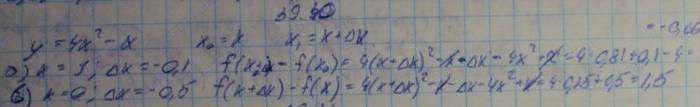 39.40
y = 4x² - x x₀ = x x₁ = x + Δx
а) x = 1; Δx = -0,1 f(x₀x - f(x₀) = 4(x+Δx)² - x - Δx - 4x² + x = 4·0,81 + 0,1 - 4 =
= -0,66
б) x = 0; Δx = -0,5 f(x+Δx) - f(x) = 4(x+Δx)² - x - Δx - 4x² + x = 4·0,25 + 0,5 = 1,5